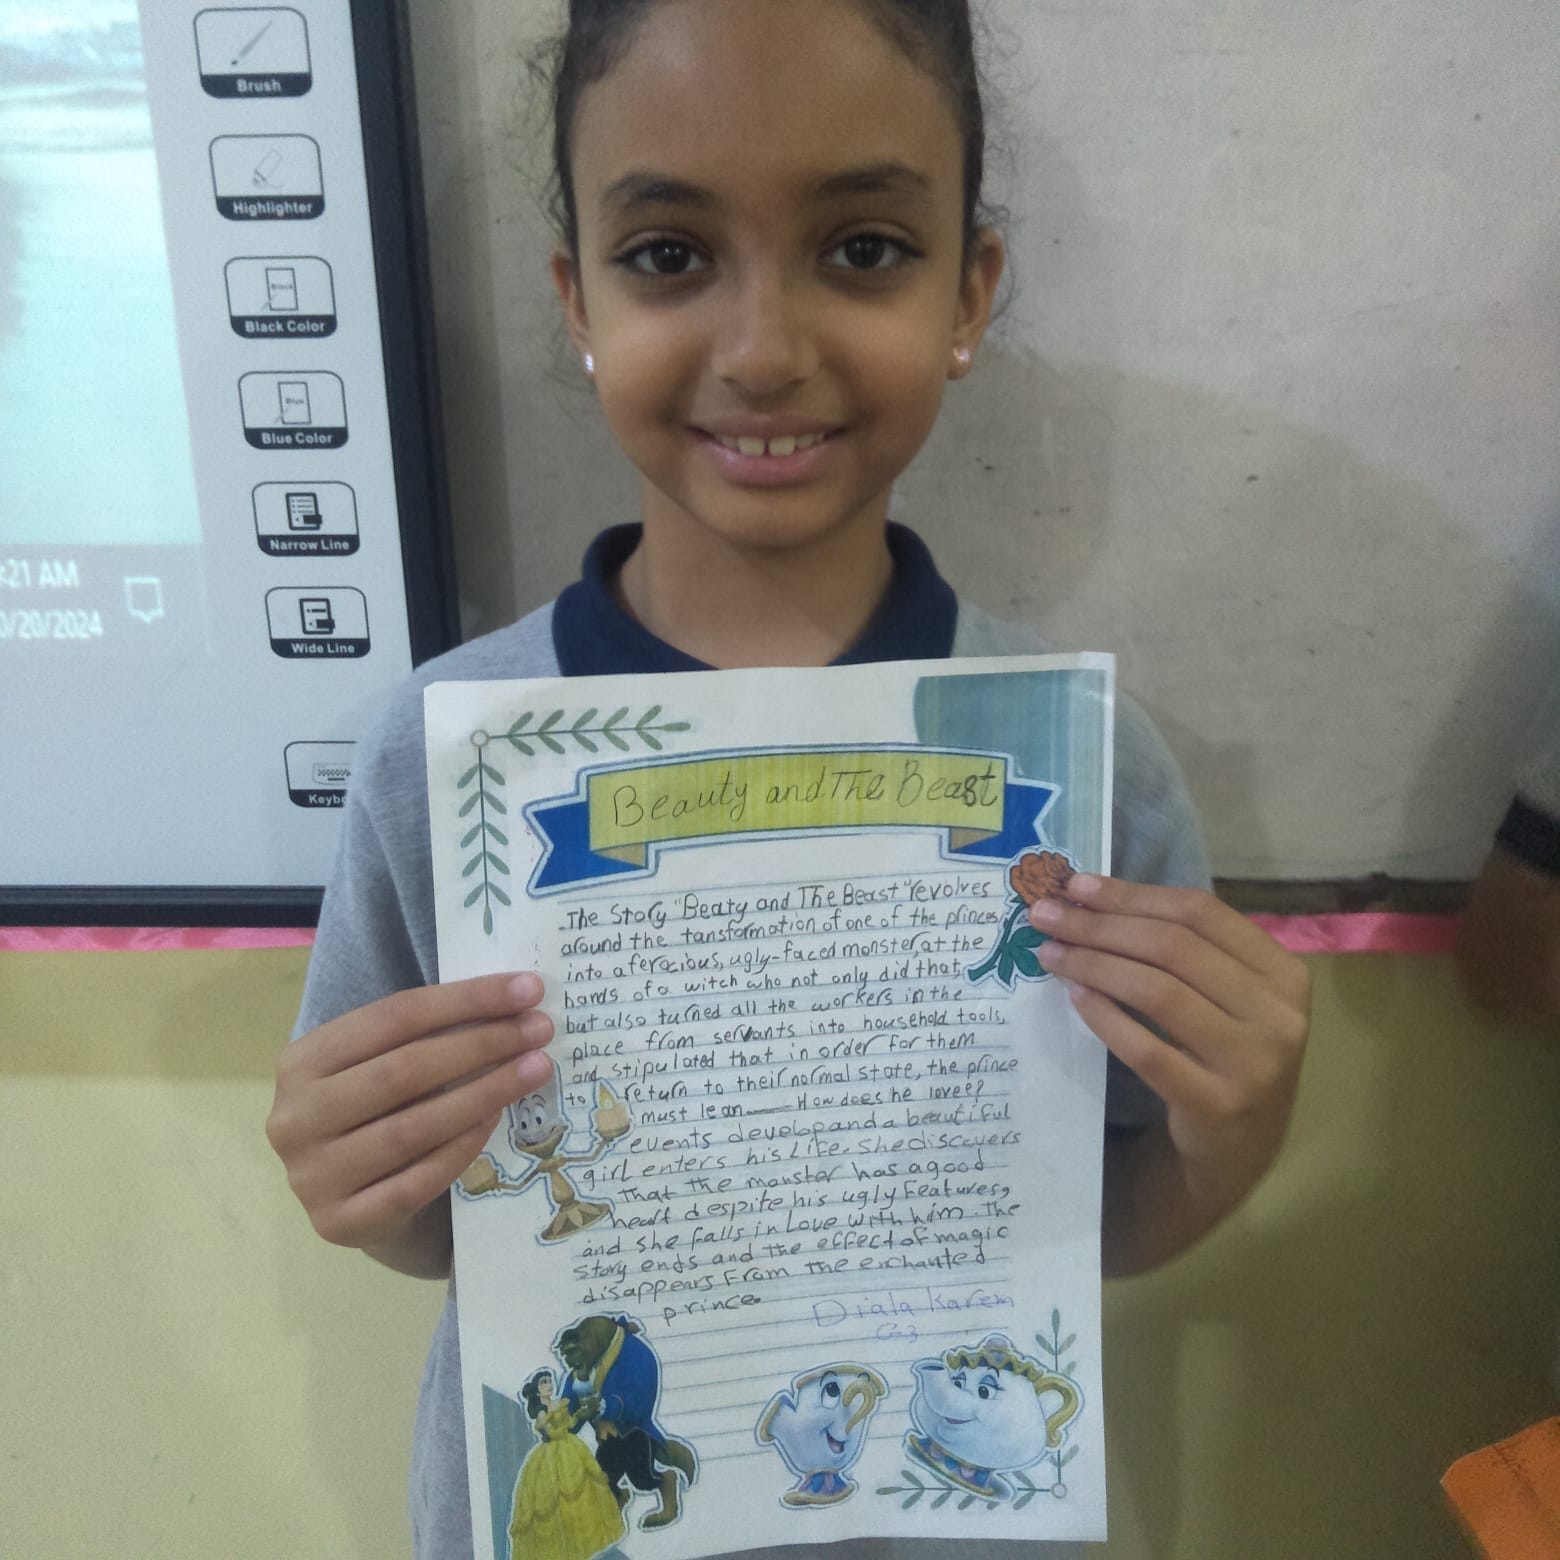 Brush
Highlighter
Black
Black Color
Blue
Blue Color
Narrow Line
:21 AM
0/20/2024
Wide Line
Keybo
Beauty and The Beast
The Story "Beaty and The Beast" revolves
around the tansformation of one of the princes,
into a ferocious, ugly-faced monster, at the
hands of a witch who not only did that,
but also turned all the workers in the
place from servants into household tools,
and stipulated that in order for them
to return to their normal state, the prince
must lean — How does he lovee?
events develop and a beautiful
girl enters his Life. She discovers
that the monster has a good
heart despite his ugly Features,
and she falls in Love with him. The
story ends and the effect of magic
disappears From the enchanted
prince.
Diala Karem
G-3